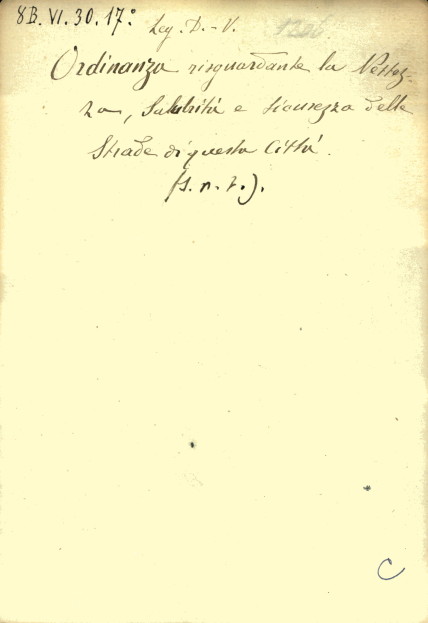 8B. VI. 30. 17.º
Leg. D. - V. 1206
Ordinanza risguardante la Nettez-
za, Salubrità e sicurezza delle
Strade di questa Città.
(s. n. t.).
C